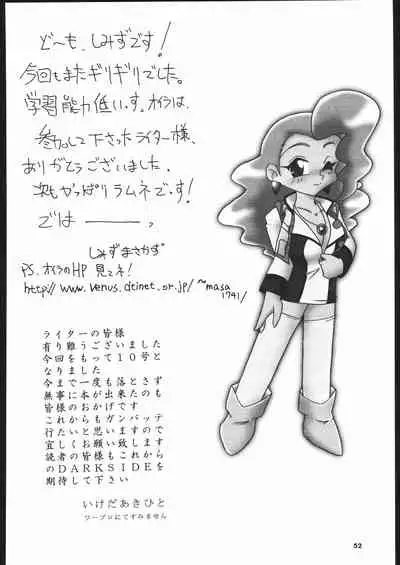 ど〜も、しみずです！
今回もまたギリギリでした。
学習能力低いっす。オイラは、
参加して下さったライター様、
ありがとうございました。
次もやっぱりラムネです！
では―――っ
しみずまさかず
PS. オイラのHP 見てネ！
http://www.venus.dtinet.or.jp/~masa
1741/
ライターの皆様
有り難うございました
今回をもって１０号と
なりました
今まで一度も落とさず
無事に本が出来たのも
皆様のおかげです
これからもガンバッテ
行たいと思いますので
宜しくお願い致します
読者の皆様もこれから
のＤＡＲＫＳＩＤＥを
期待して下さい
いけだあきひと
ワープロにてすみません
52